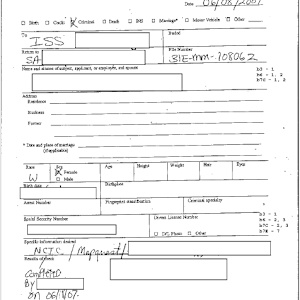 Date 06/08/2007
Birth Credit Criminal Death INS Marriage* Motor Vehicle Other
To ISS Buded
Return to SA File Number 31E-mm-108062
Name and aliases of subject, applicant, or employee, and spouse
b6 - 1, 2
b7C - 1, 2
Address
Residence
Business
Former
* Date and place of marriage
(if applicable)
Race Sex Age Height Weight Hair Eyes
W Female
Male
Birth date Birthplace
Arrest Number Fingerprint classification Criminal specialty
Social Security Number Drivers License Number
D/L Photo Other
b6 - 1
b6 - 2, 3
b7C - 2, 3
b7E - 7
Specific information desired
NCIC / Mapquest /
Results of check
Completed
By
on 06/11/07.